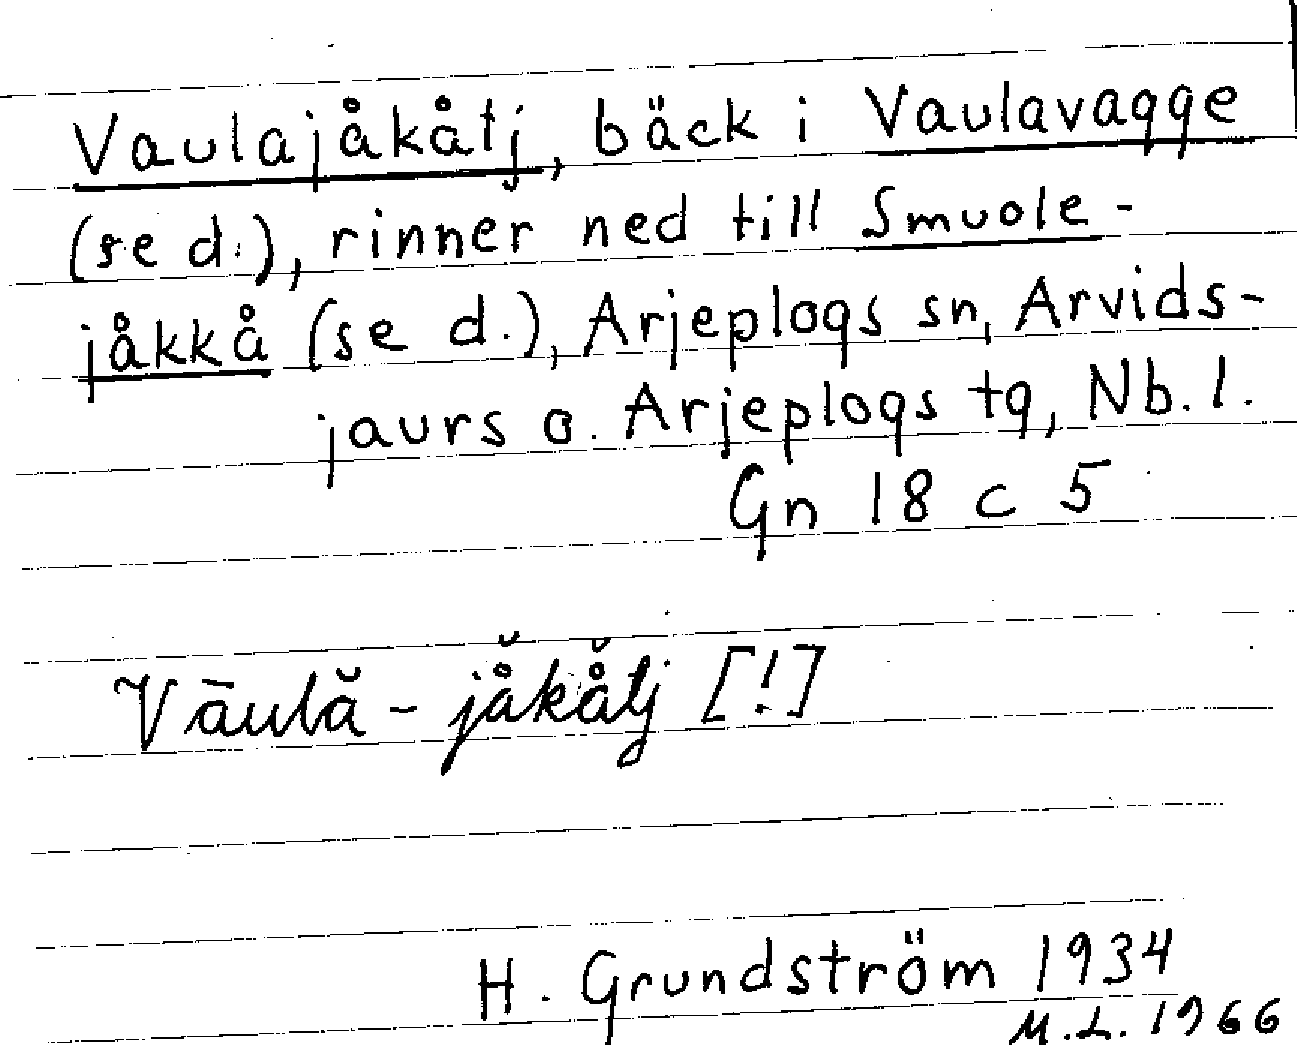 Vaulajåkåtj, bäck i Vaulavagge
(se d.), rinner ned till Smuole-
jåkkå (se d.), Arjeplogs sn, Arvids-
jaurs o. Arjeplogs tg, Nb. l.
Gn 18 c 5
Vāulă-jå̆kå̆tj [!]
H. Grundström 1934
M.L. 1966